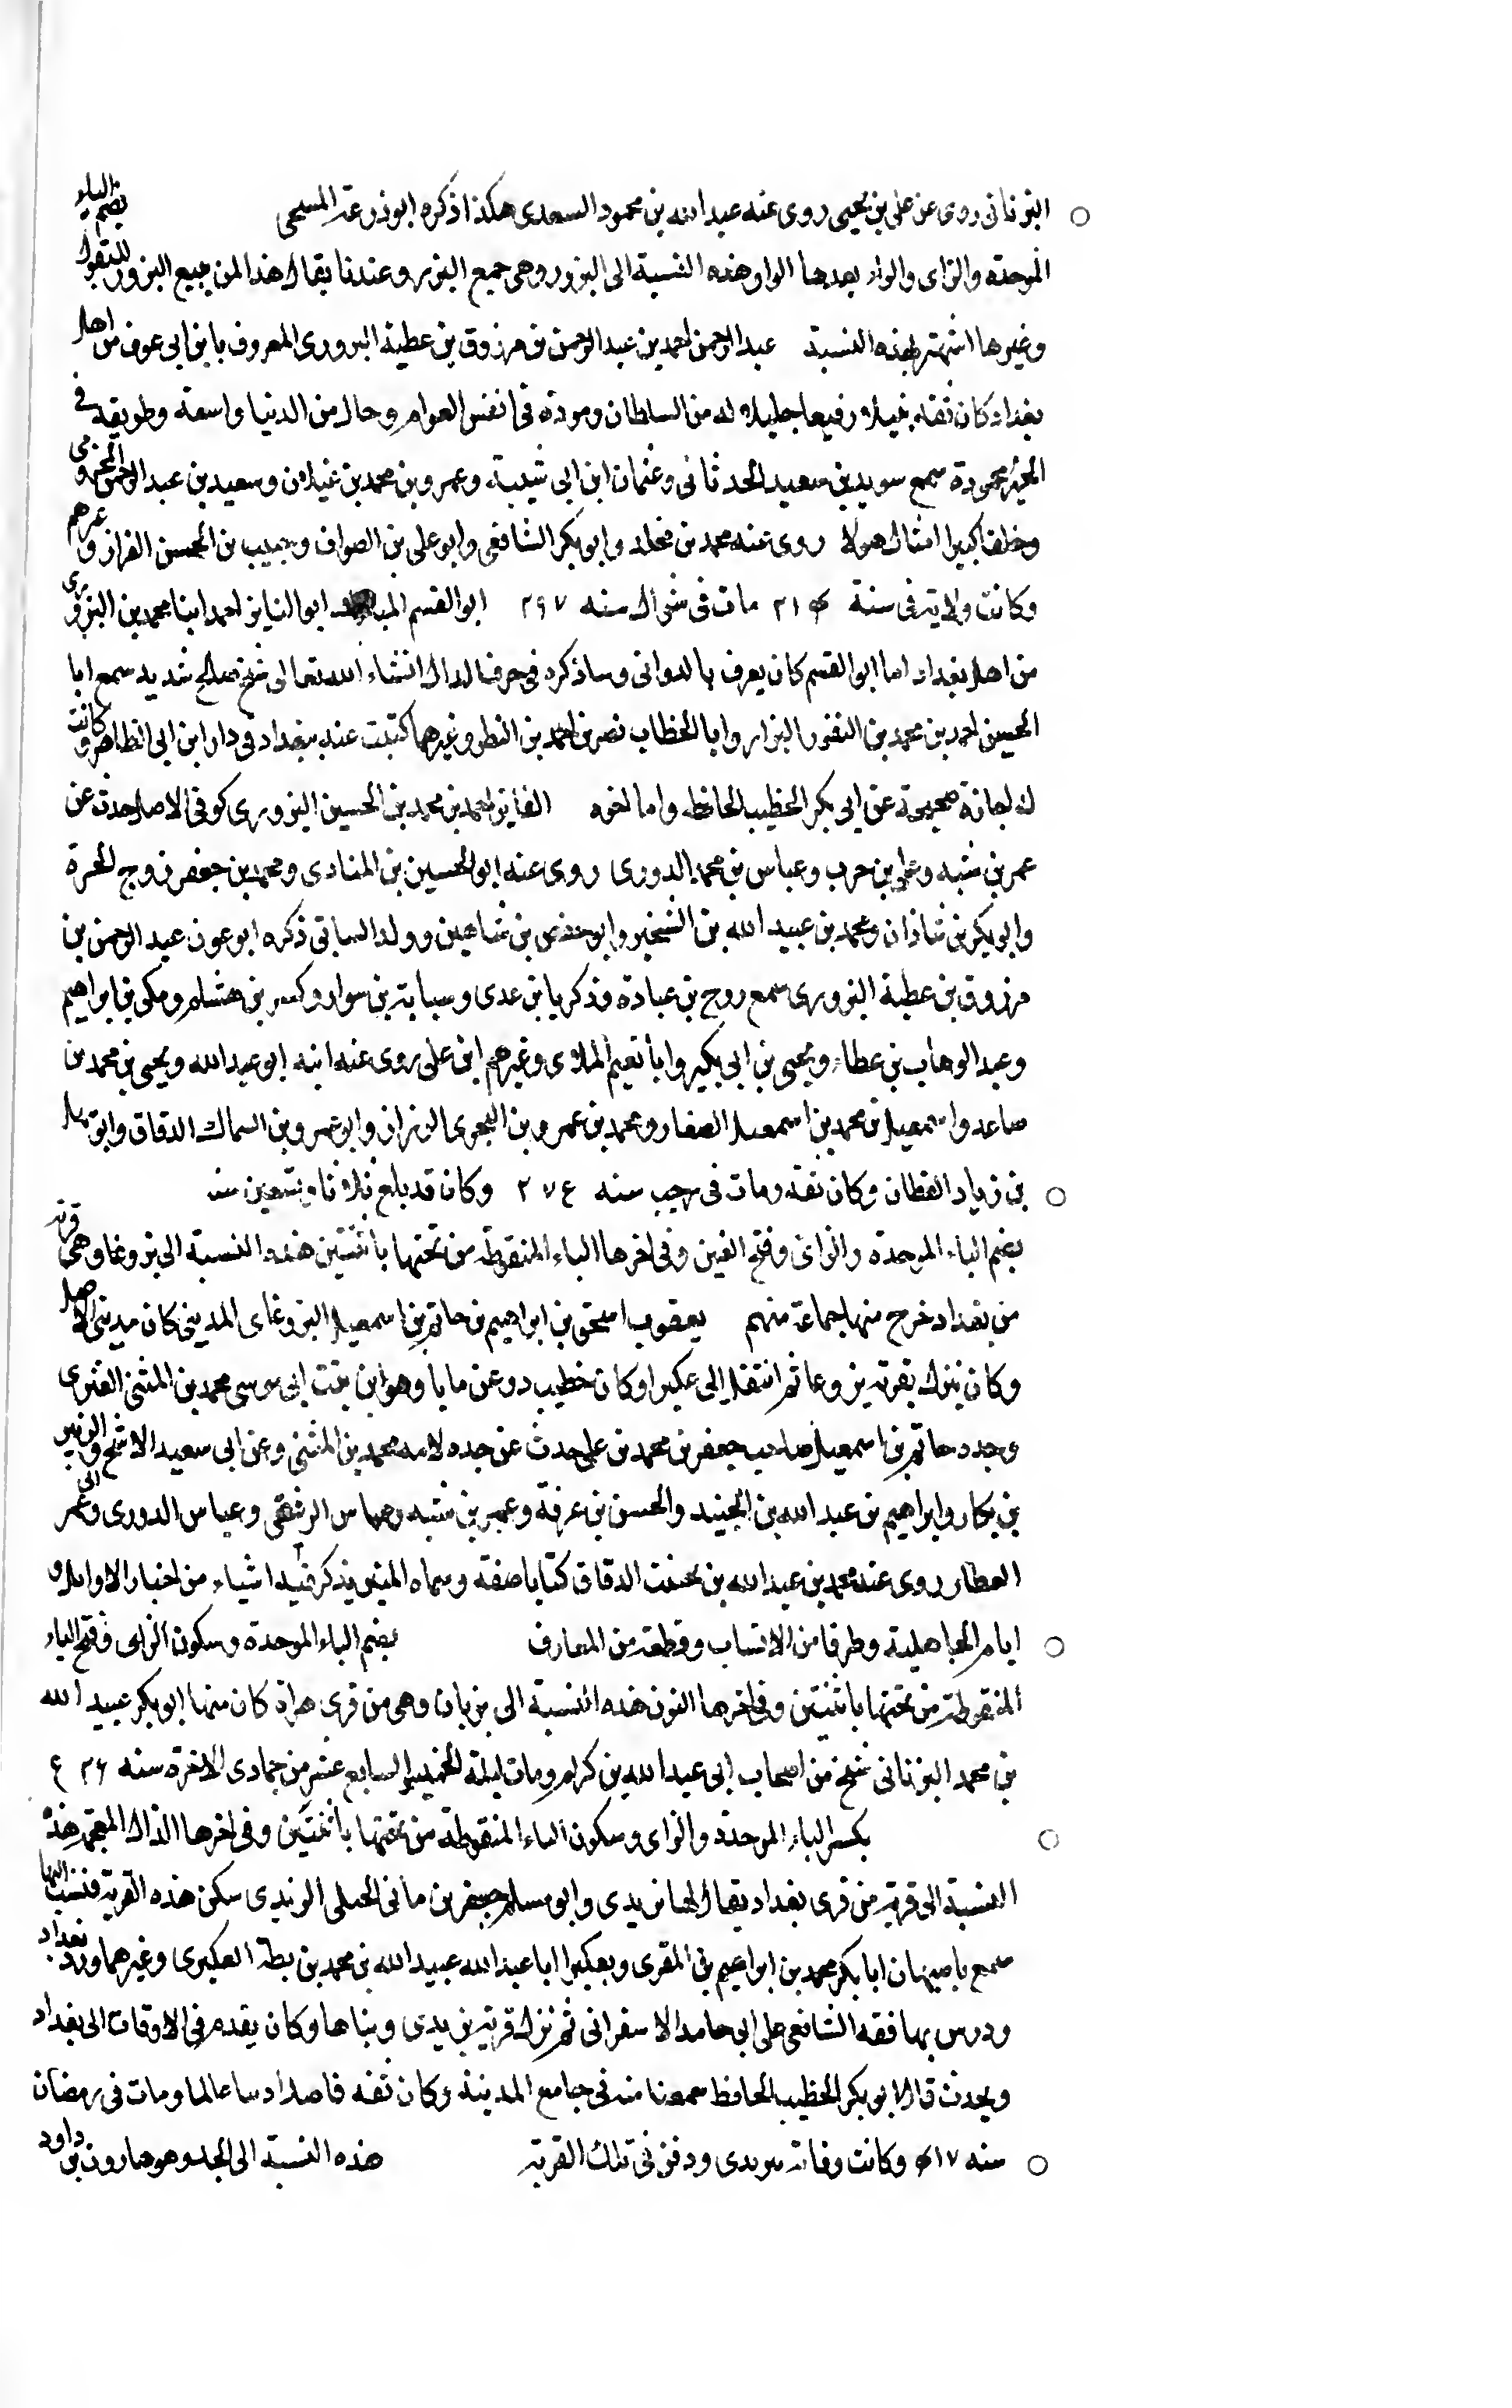 البزنانى روى عن على بن يحيى روى عنه عبد الله بن محمود السعدى هكذا ذكره ابوزرعة السبحى بضم الباء
الموحدة والزاى والواو بعدها الواو هذه النسبة الى البزور وهى جمع البزر وعندنا يقال هذا لمن يبيع البزور للبقول
وغيرها اشتهر بهذه النسبة عبد الرحمن احمد بن عبد الرحمن بن مرزوق بن عطية البزورى المعروف بابن ابى عوف من اهل
بغداد كان ثقة نبيلا رفيعا جليلا له من السلطان ومودة فى انفس العوام وحال من الدنيا واسعة وطريقة فى
الخير محمودة سمع سويد بن سعيد الحدثانى وعثمان ابن ابى شيبة وعمرو بن محمد بن غيلان وسعيد بن عبد الرحمن المخزومى
وخلقا كبيرا امثال هولا روى عنه محمد بن مخلد وابو بكر الشافعى وابو على بن الصواف وحبيب بن الحسن القزاز وغيرهم
وكانت ولادته فى سنة مات فى شوال سنه ٢٩٧ ابو القسم ابو احمد ابنا محمد بن البزورى
من اهل بغداد اما ابو القسم كان يعرف بالدوانى وساذكره فى حرف الدال انشاء الله تعالى شيخ صالح شديد سمع ابا
الحسين احمد بن محمد بن النقور البزار وابا الخطاب نصر بن احمد بن النطر وغيرهما كتبت عنه ببغداد فى دار ابن ابى الظاهر وكانت
له اجازة صحيحة عن ابى بكر الخطيب الحافظ واما اخوه الفايز احمد بن محمد بن الحسين البزورى كوفى الاصل حدث عن
عمر بن شبه وعلى بن حرب وعباس بن محمد الدورى روى عنه ابو الحسين بن المنادى ومحمد بن جعفر زوج الحرة
وابو بكر بن شاذان ومحمد بن عبيد الله بن الشخير وابو حفص بن شاهين وولد ذكره ابو عون عبد الرحمن بن
مرزوق بن عطية البزورى سمع روح بن عبادة وزكريا بن عدى وسبابة بن سوار وكثير بن هشام ومكى بن ابراهيم
وعبد الوهاب بن عطاء ويحيى بن ابى بكير وابا نعيم الملاى وغيرهم ابن على روى عنه ابنه ابو عبد الله ويحيى بن محمد بن
صاعد واسمعيل بن محمد بن اسمعيل الصفار ومحمد بن عمرو بن البخترى الرزاز وابو عمرو بن السماك الدقاق وابو سهل
بن زياد القطان وكان ثقة ومات فى رجب سنه ٢٧٤ وكان قد بلغ ثلاثا وتسعين سنه
بضم الباء الموحدة والزاى وفتح الغين وفى اخرها الياء المنقوطة من تحتها باثنتين هذه النسبة الى بزوغا وهى قرية
من بغداد خرج منها جماعة منهم يعقوب اسحق بن ابراهيم بن حاتم بن اسمعيل البزوغاى المدينى كان مدينى الاصل
وكان ينزل بقرية بزوغا ثم انتقل الى عكبرا وكان خطيب وهو ابن بنت ابى موسى محمد بن المثنى العنزى
وجده حاتم بن اسمعيل صاحب جعفر بن محمد بن على حدث عن جده لامه محمد بن المثنى وعن ابى سعيد الاشج والزبير
بن بكار وابراهيم بن عبد الله بن الجنيد والحسن بن عرفة وعمر بن شبه وعباس الدورى وابى عمر
العطار روى عنه محمد بن عبد الله بن بخيت الدقاق كتابا صنفه وسماه يذكر فيه اشياء من اخبار الاوايل و
ايام الجاهلية وطرفا من الانساب وقطعة من المعارف بضم الباء الموحدة وسكون الزاى وفتح الياء
المنقوطة من تحتها باثنتين وفى اخرها النون هذه النسبة الى بزيان وهى من قرى هراة كان منها ابو بكر عبيد الله
بن محمد البزنانى شيخ من اصحاب ابى عبد الله بن كرام ومات ليلة الخميس السابع عشر من جمادى الاخرة سنه
بكسر الباء الموحدة والزاى وسكون الياء المنقوطة من تحتها باثنتين وفى اخرها الذال المعجمه هذه
النسبة الى قرية من قرى بغداد يقال لها بزيدى وابو مسلم جعفر بن الجيلى البزيدى سكن هذه القرية فنسب اليها
سمع باصبهان ابا بكر محمد بن ابراهيم بن المقرى وبعكبرا ابا عبد الله عبيد الله بن محمد بن بطة العكبرى وغيرهما وورد بغداد
ودرس بها فقه الشافعى على ابى حامد الاسفرانى ثم نزل قرية بزيدى وبناها وكان يقدم فى الاوقات الى بغداد
ويحدث قال ابو بكر الخطيب الحافظ سمعنا منه فى جامع المدينة وكان ثقة فاضلا عالما ومات فى رمضان
سنه وكانت وفاته ببزيدى ودفن فى تلك القرية هذه النسبة الى الجد وهو هارون بن داود